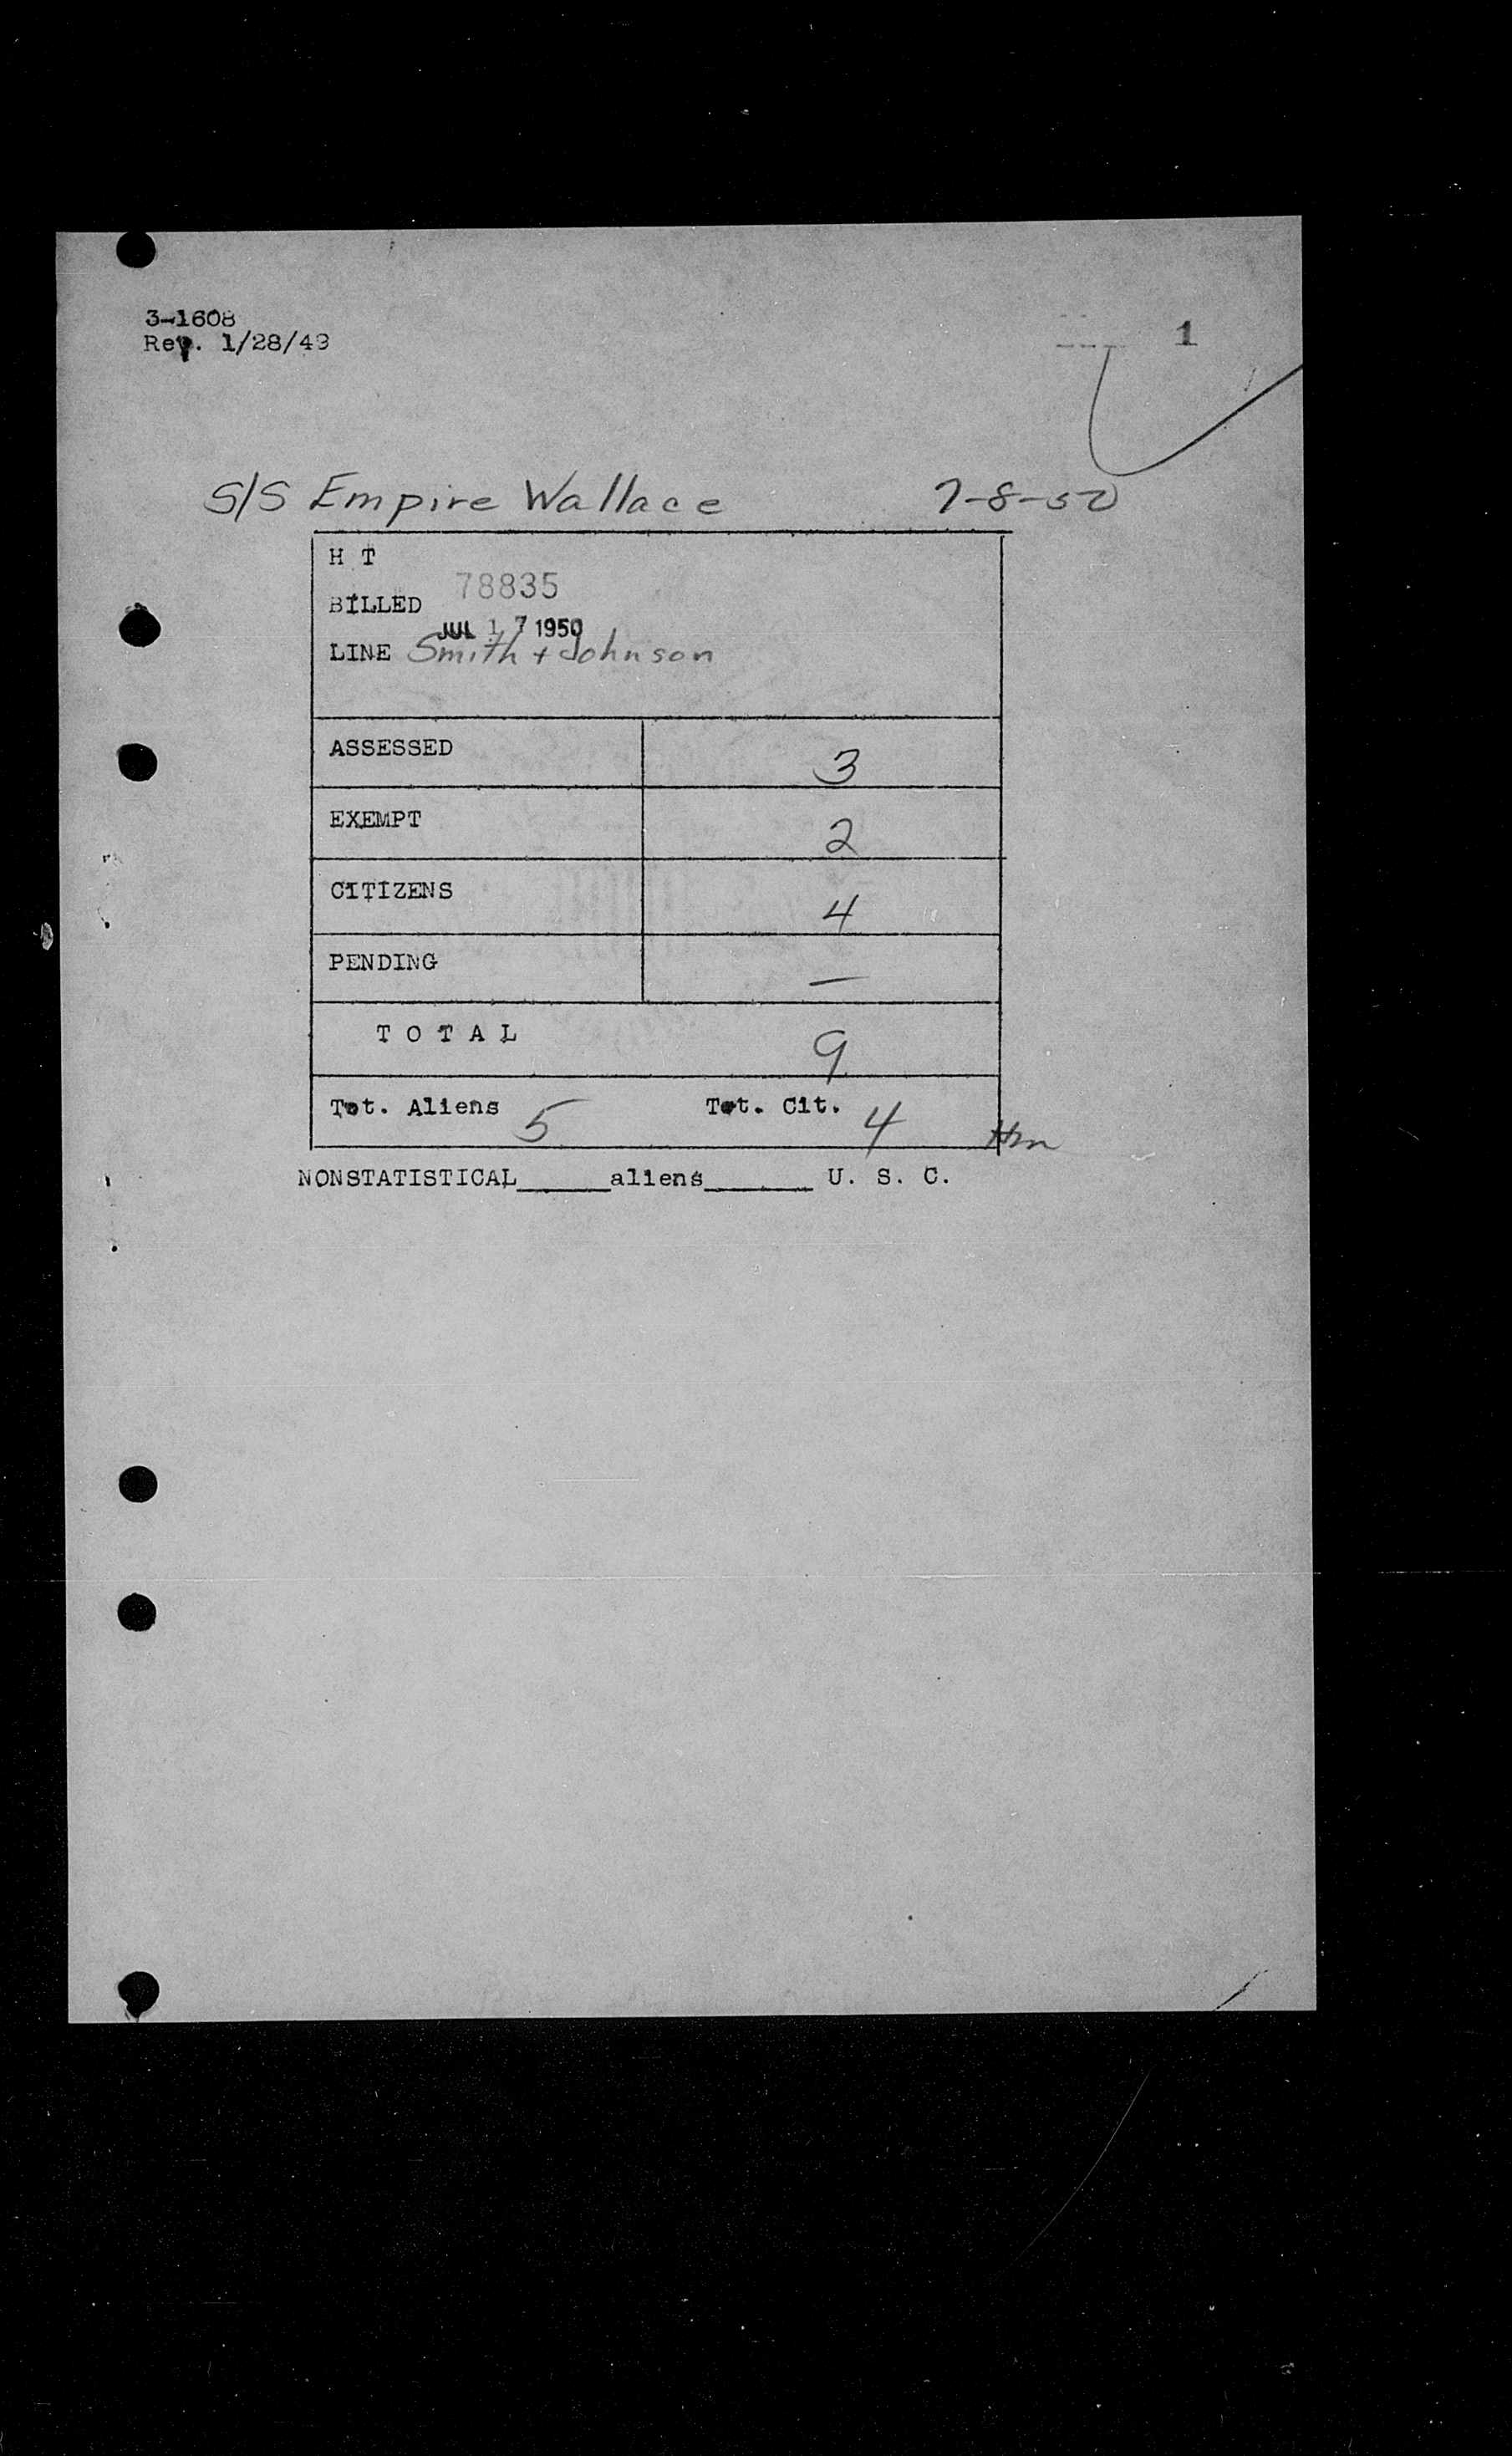 3-1608
Rev. 1/28/49
1
S/S Empire Wallace 7-8-50
H T
78835
BILLED
JUL 17 1950
LINE Smith + Johnson
ASSESSED 3
EXEMPT 2
CITIZENS 4
PENDING —
T O T A L 9
Tot. Aliens 5 Tot. Cit. 4
NONSTATISTICAL_____aliens______ U. S. C.